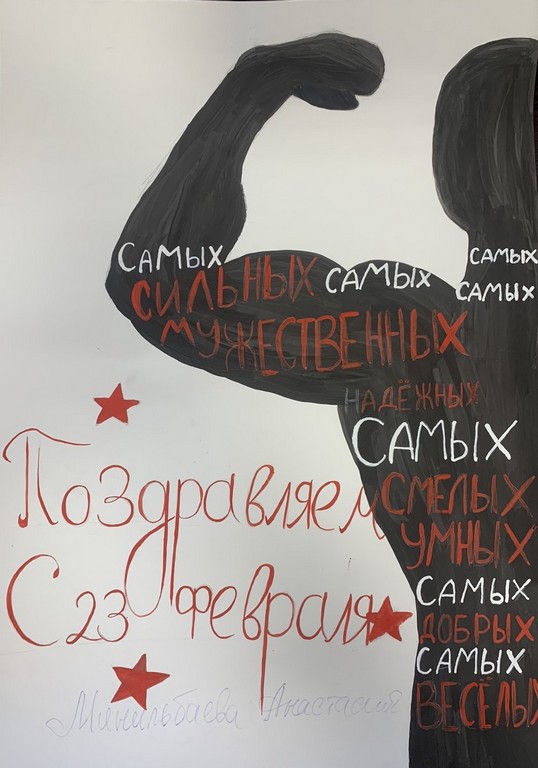 Самых
сильных самых
мужественных
самых
самых
надёжных
самых
смелых
умных
самых
добрых
самых
весёлых
Поздравляем
С 23 февраля
Минильбаева Анастасия